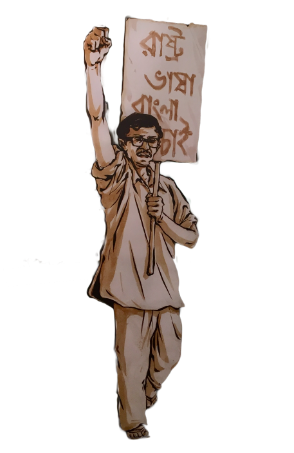 রাষ্ট্র
ভাষা
বাংলা
চাই